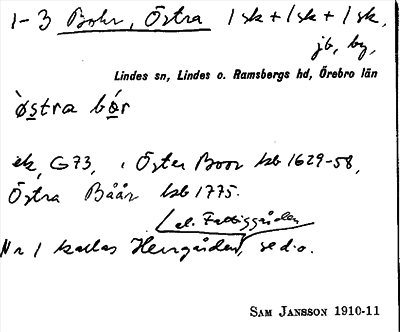 1-3 Bohr, Östra 1 sk + 1 sk + 1 sk,
jb, by,
Lindes sn, Lindes o. Ramsbergs hd, Örebro län
östra bor
ek, G73, i Öster Boor ksb 1629-58,
Östra Båår ksb 1775.
el. Fattiggården
Nr 1 kallas Herrgården, se d.o.
SAM JANSSON 1910-11